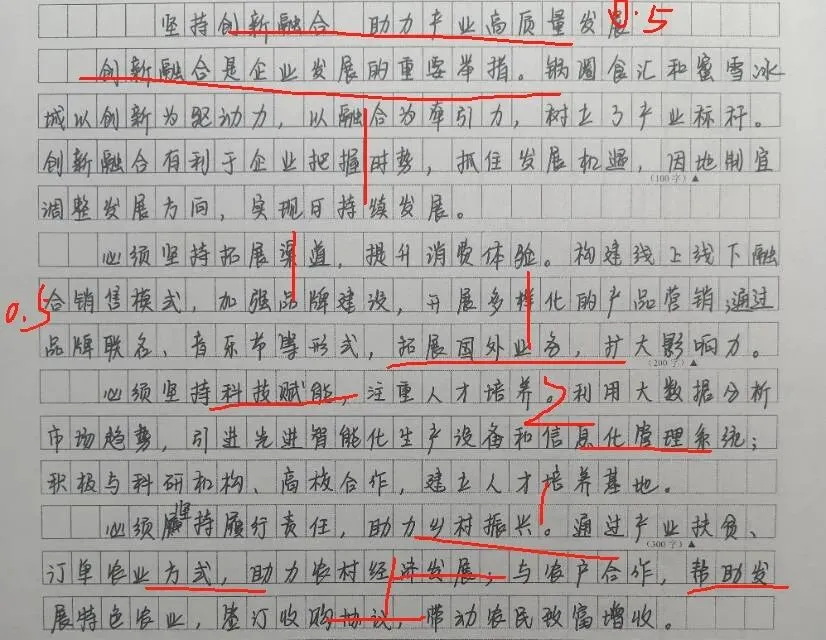 坚持创新融合 助力产业高质量发展
0.5
创新融合是企业发展的重要举措。锅圈食汇和蜜雪冰
城以创新为驱动力，以融合为牵引力，树立了产业标杆。
创新融合有利于企业把握时势，抓住发展机遇，因地制宜
(100字)▲
调整发展方向，实现可持续发展。
必须坚持拓展渠道，提升消费体验。构建线上线下融
0.5
合销售模式，加强品牌建设，开展多样化的产品营销；通过
品牌联名、音乐节等形式，拓展国外业务，扩大影响力。
(200字)▲
必须坚持科技赋能，注重人才培养。利用大数据分析
2
市场趋势，引进先进智能化生产设备和信息化管理系统；
积极与科研机构、高校合作，建立人才培养基地。
必须坚持履行责任，助力乡村振兴。通过产业扶贫、
(300字)▲
订单农业方式，助力农村经济发展；与农户合作，帮助发
展特色农业，签订收购协议，带动农民致富增收。